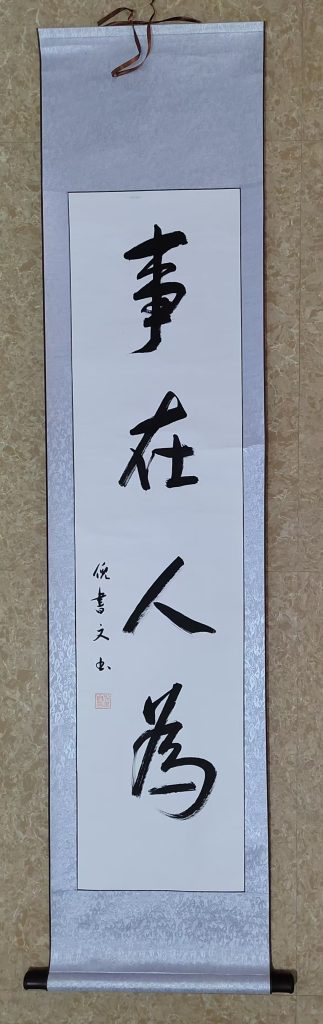 事在人為
倪書文书